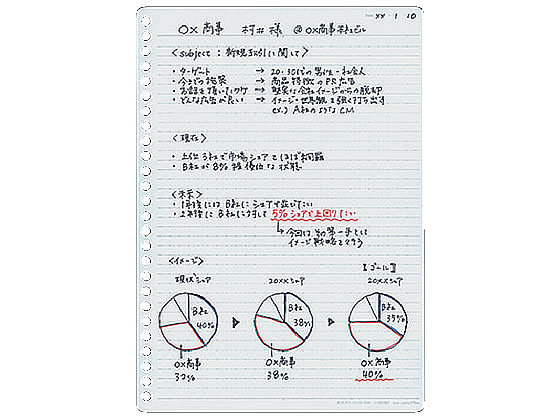 XX 1 10
○×商事 村井様 @○×商事本社ビル
<subject: 新規取引に関して>
・ターゲット → 20・30代の男性・社会人
・今までの施策 → 商品特徴のPR広告
・お話を頂いたワケ → 堅実な会社イメージからの脱却
・どんな広告が良い → イメージ・世界観を強く打ち出す
ex.) A社のようなCM
<現在>
・上位3社で市場シェアをほぼ独占
・B社が8%程優位な状態
<未来>
・1年後にはB社にシェアで並びたい
・2年後にB社に対して5%シェアで上回りたい
↳今回は初の第一手として
イメージ戦略をとろう
<イメージ>
【ゴール】
現状シェア 20XXシェア 20XXシェア
B社 B社 B社
40% 38% 35%
○×商事 ○×商事 ○×商事
32% 38% 40%